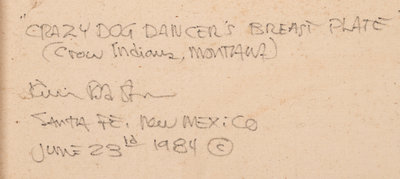 "CRAZY DOG DANCER'S BREAST PLATE
(Crow Indians, MONTANA)
SANTA FE, New MEXiCO
JUNE 23rd 1984 ©